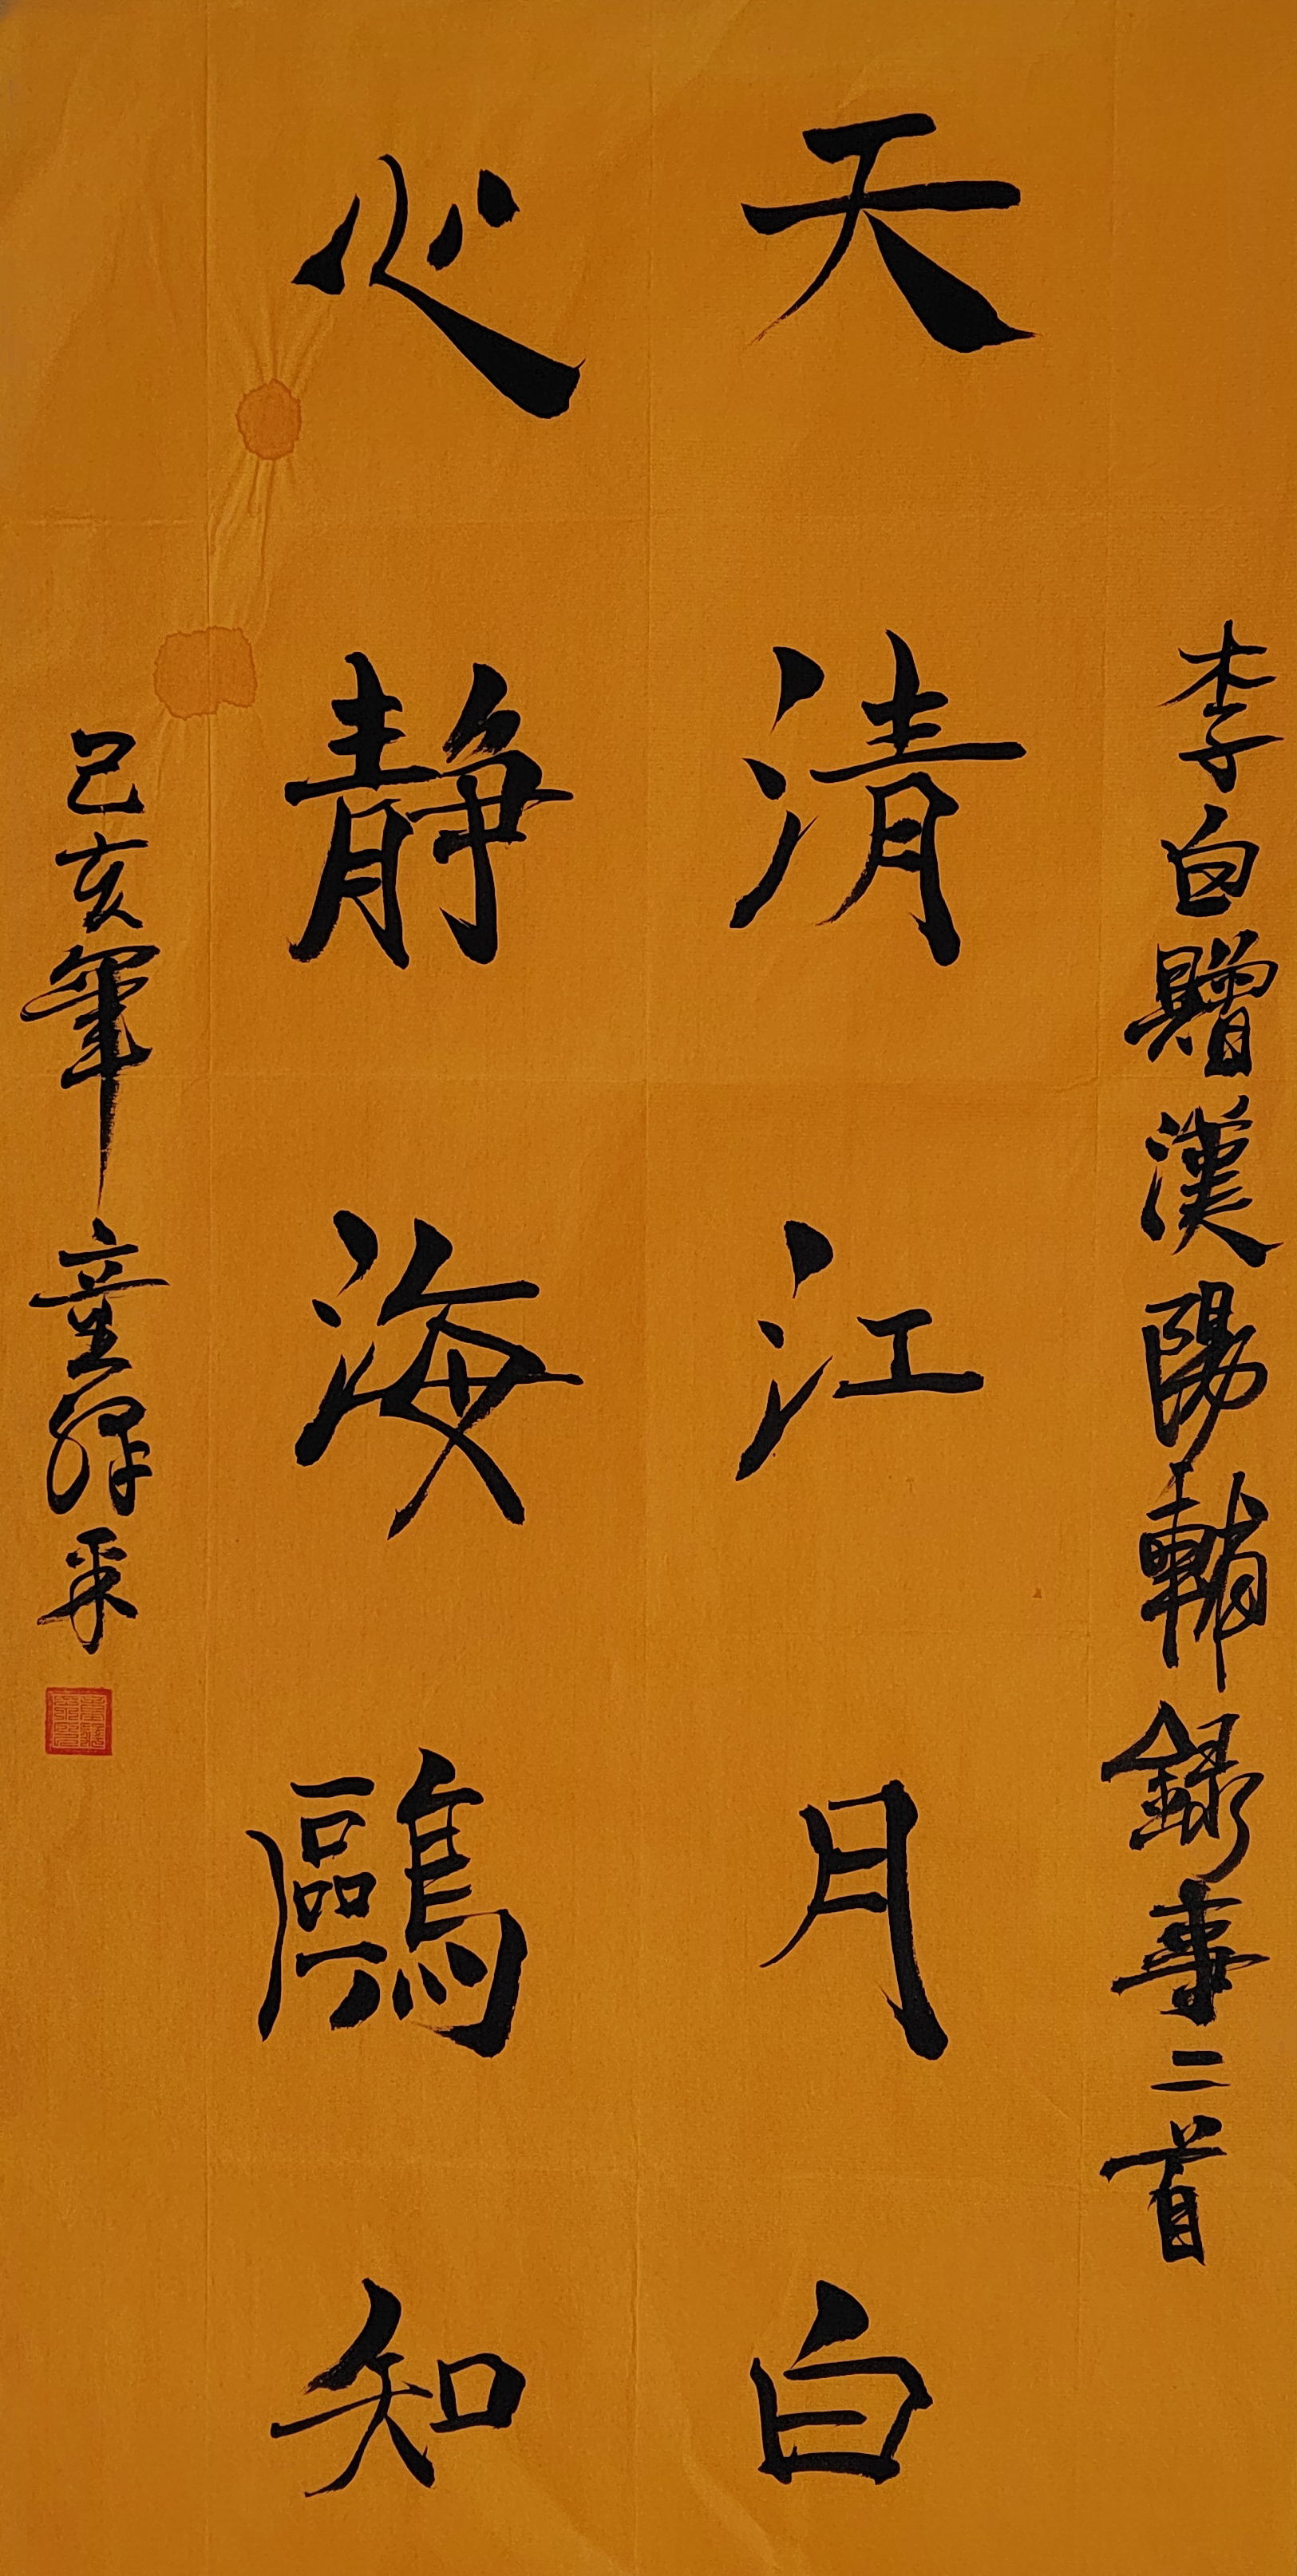 李白贈漢陽輔錄事二首
天清江月白
心静海鷗知
己亥年 童